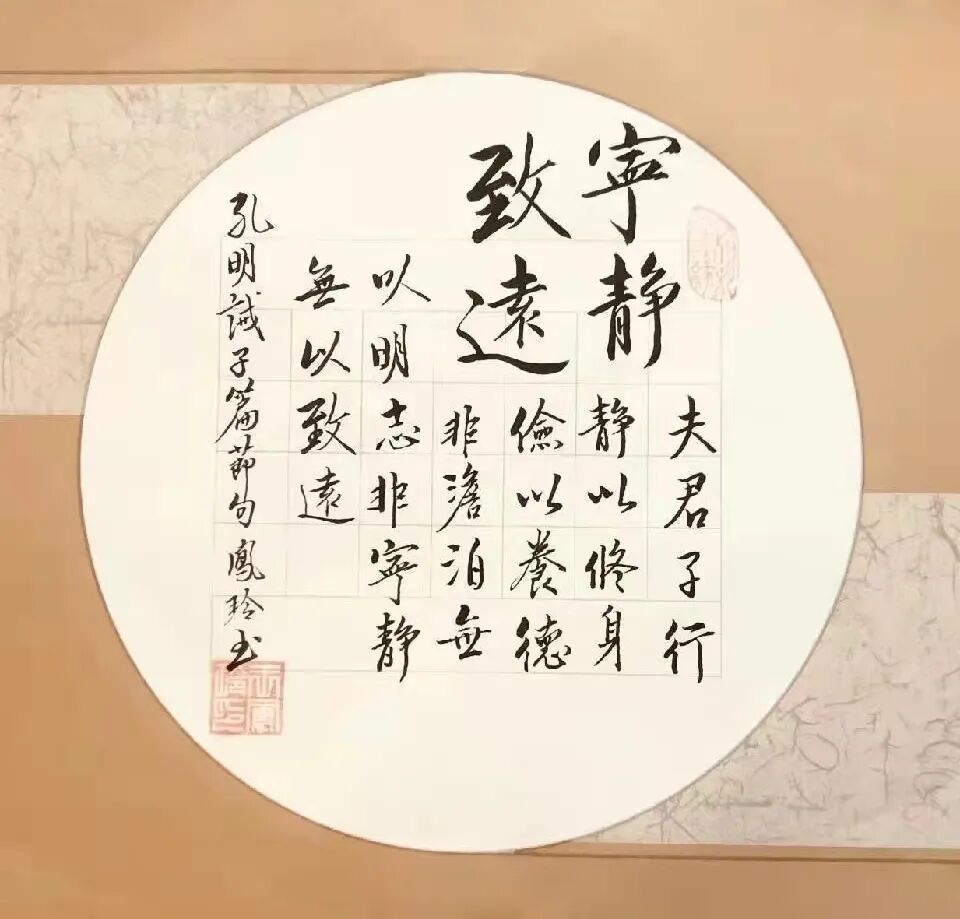 寧静
致遠
夫君子行
静以修身
儉以養德
非澹泊無
以明志非寧静
無以致遠
孔明誡子篇節句鳳玲书